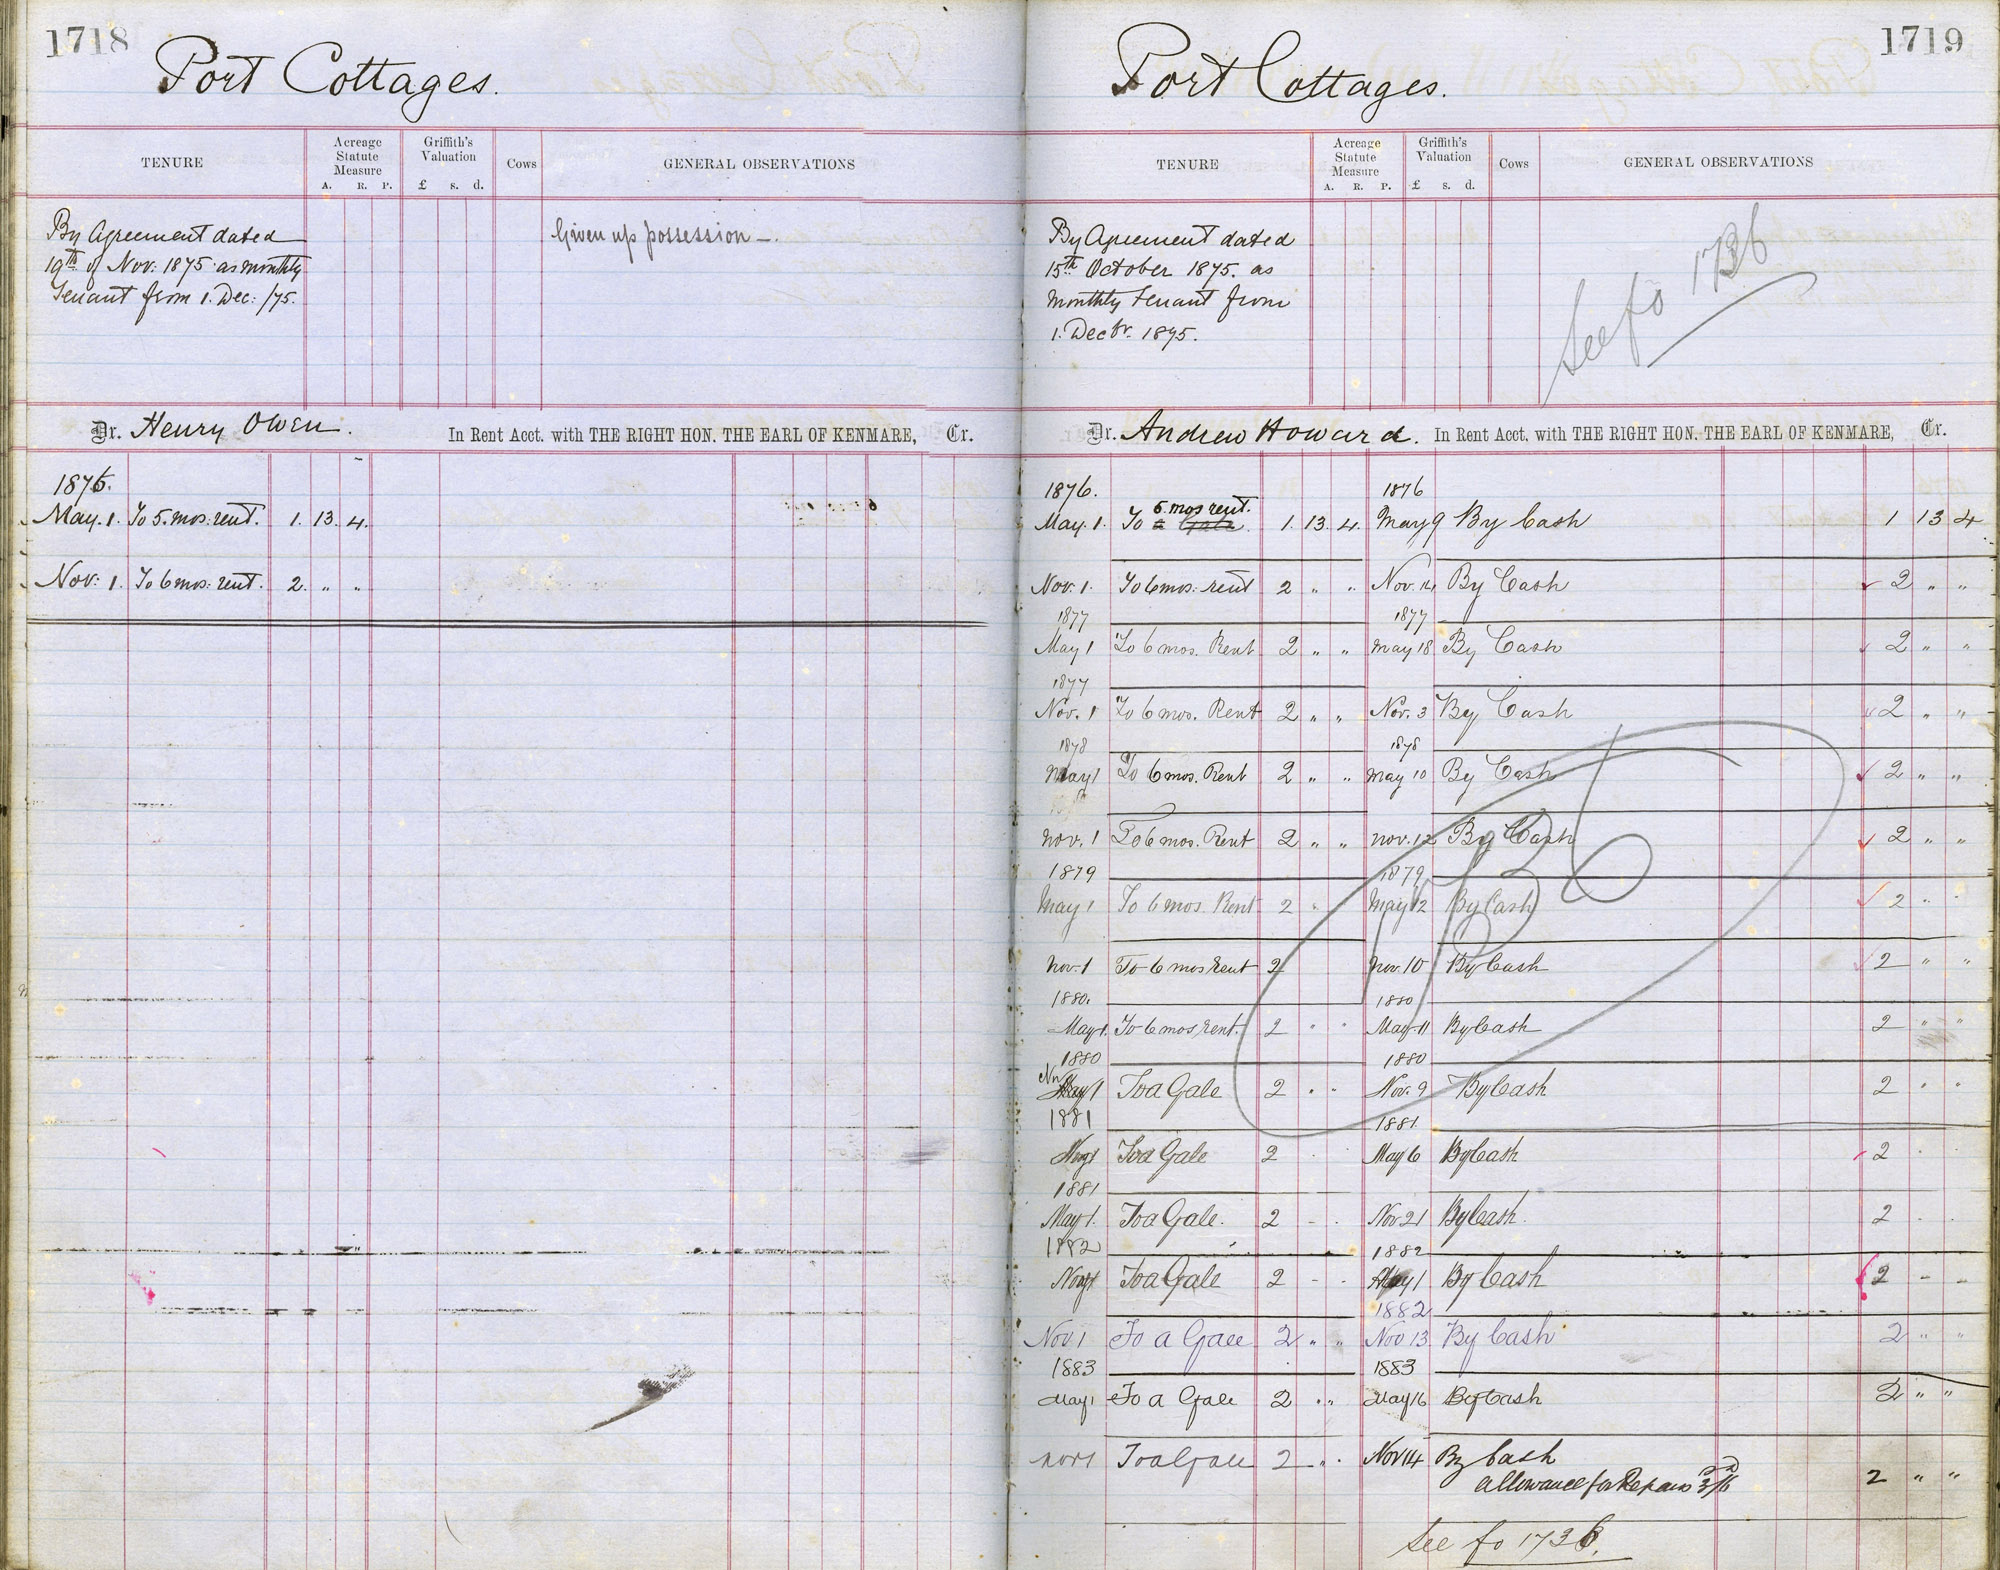 1718
Port Cottages.
TENURE
Acreage Statute Measure
A. R. P.
Griffith's Valuation
£ s. d.
Cows
GENERAL OBSERVATIONS
By Agreement dated
19th of Nov: 1875 as monthly
Tenant from 1. Dec: /75.
Given up possession —.
Dr. Henry Owen. In Rent Acct. with THE RIGHT HON. THE EARL OF KENMARE, Cr.
1876.
May. 1. To 5. mos: rent. 1. 13. 4.
Nov: 1. To 6 mos: rent. 2. " "
1719
Port Cottages.
TENURE
Acreage Statute Measure
A. R. P.
Griffith's Valuation
£ s. d.
Cows
GENERAL OBSERVATIONS
By Agreement dated
15th October 1875. as
monthly Tenant from
1. Decbr. 1875.
See fo 1736
Dr. Andrew Howard. In Rent Acct. with THE RIGHT HON. THE EARL OF KENMARE, Cr.
1876. 1876
May. 1. To 5 mos rent. a Gale 1. 13. 4. May 9 By Cash 1 13 4
Nov. 1. To 6 mos: rent 2 " " Nov. 14 By Cash 2 " "
1877 1877
May 1 To 6 mos. Rent 2 " " May 18 By Cash 2 " "
1877
Nov. 1 To 6 mos. Rent 2 " " Nov. 3 By Cash 2 " "
1878 1878
May 1 To 6 mos. Rent 2 " " May 10 By Cash 2 " "
Nov. 1 To 6 mos. Rent 2 " " Nov. 12 By Cash 2 " "
1879 1879
May 1 To 6 mos. Rent 2 " May 12 By Cash 2 " "
Nov. 1 To 6 mos Rent 2 Nov. 10 By Cash 2 " "
1880. 1880
May 1. To 6 mos rent. 2 " " May 11 By Cash 2 " "
1880 1880
Nov 1 To a Gale 2 " " Nov. 9 By Cash 2 " "
1881 1881
To a Gale 2 May 6 By Cash 2
1881
May 1. To a Gale. 2 - Nov 21 By Cash. 2
1882 1882
To a Gale 2 - May 1 By Cash 2 - -
1882
Nov 1 To a Gale 2 " " Nov 13 By Cash 2 " "
1883 1883
May 1 To a Gale 2 " " May 16 By Cash 2 " "
Nov 1 To a Gale 2 " Nov 14 By Cash
allowance for Repairs 3/6 2 " "
1736
See fo 1736.